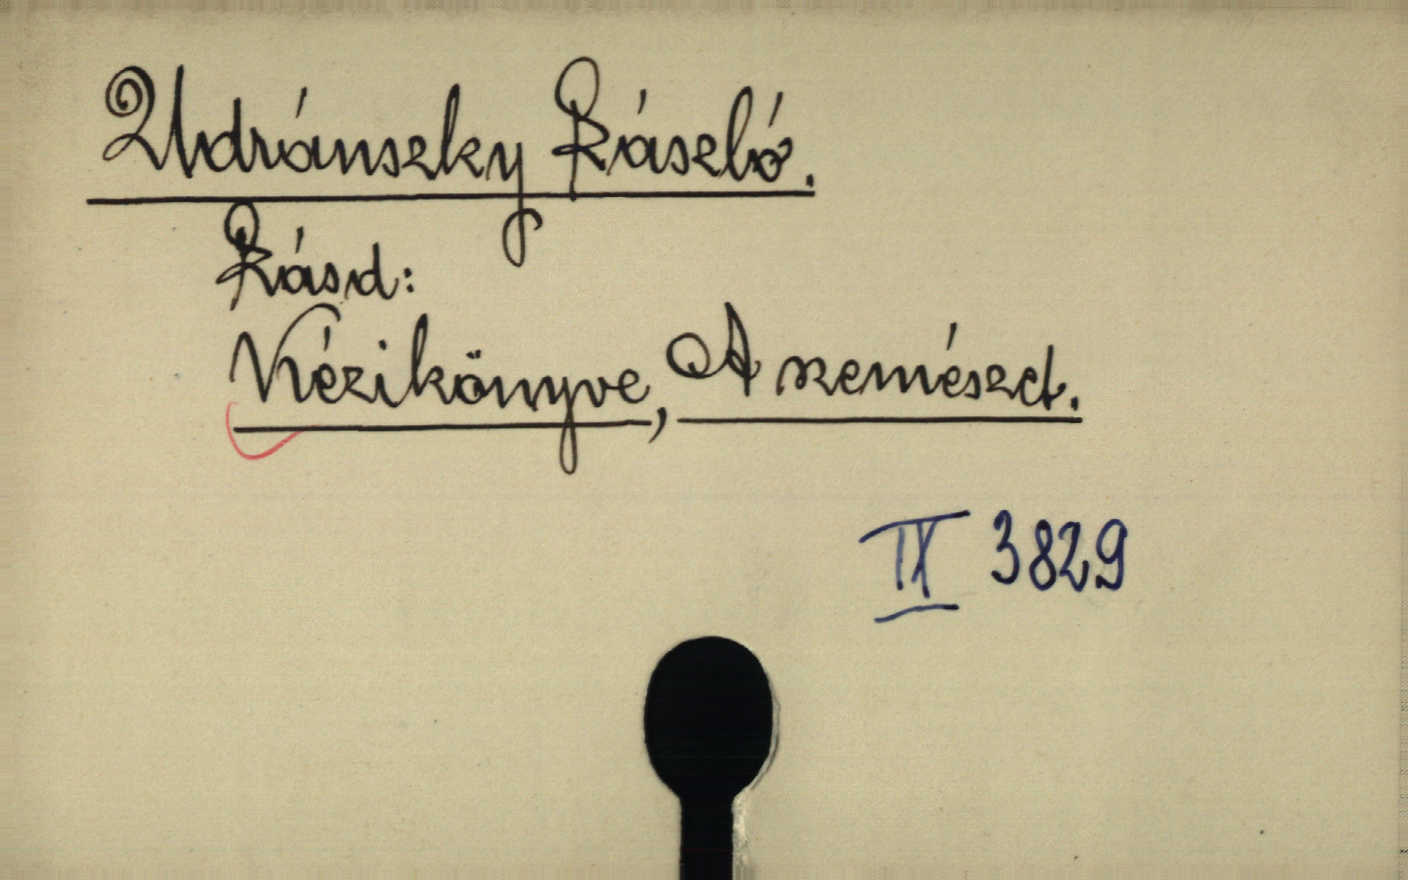 Udránszky László.
Lásd:
Kézikönyve, A nemészet.
IX 3829